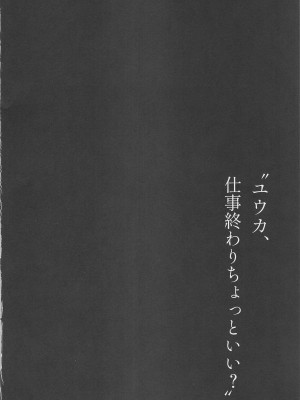 〝ユウカ、
仕事終わりちょっといい?〟